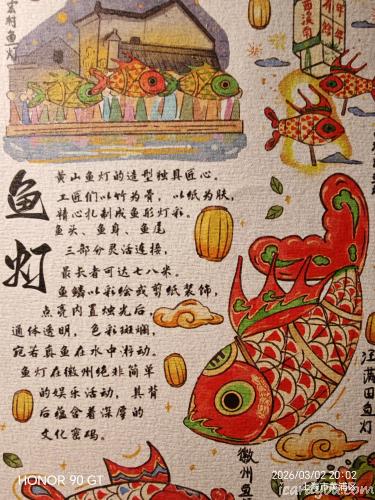 宏村鱼灯
西溪南
鱼灯
黄山鱼灯的造型独具匠心。
工匠们以竹为骨，以纸为肤，
精心扎制成鱼形灯彩。
鱼头、鱼身、鱼尾，
三部分灵活连接，
最长者可达七八米。
鱼鳞以彩绘或剪纸装饰，
点亮内置烛光后，
通体透明，色彩斑斓，
宛若真鱼在水中游动。
鱼灯在徽州绝非简单
的娱乐活动，其背
后蕴含着深厚的
文化密码。
汪满田鱼灯
徽州鱼
HONOR 90 GT
2026/03/02 20:02